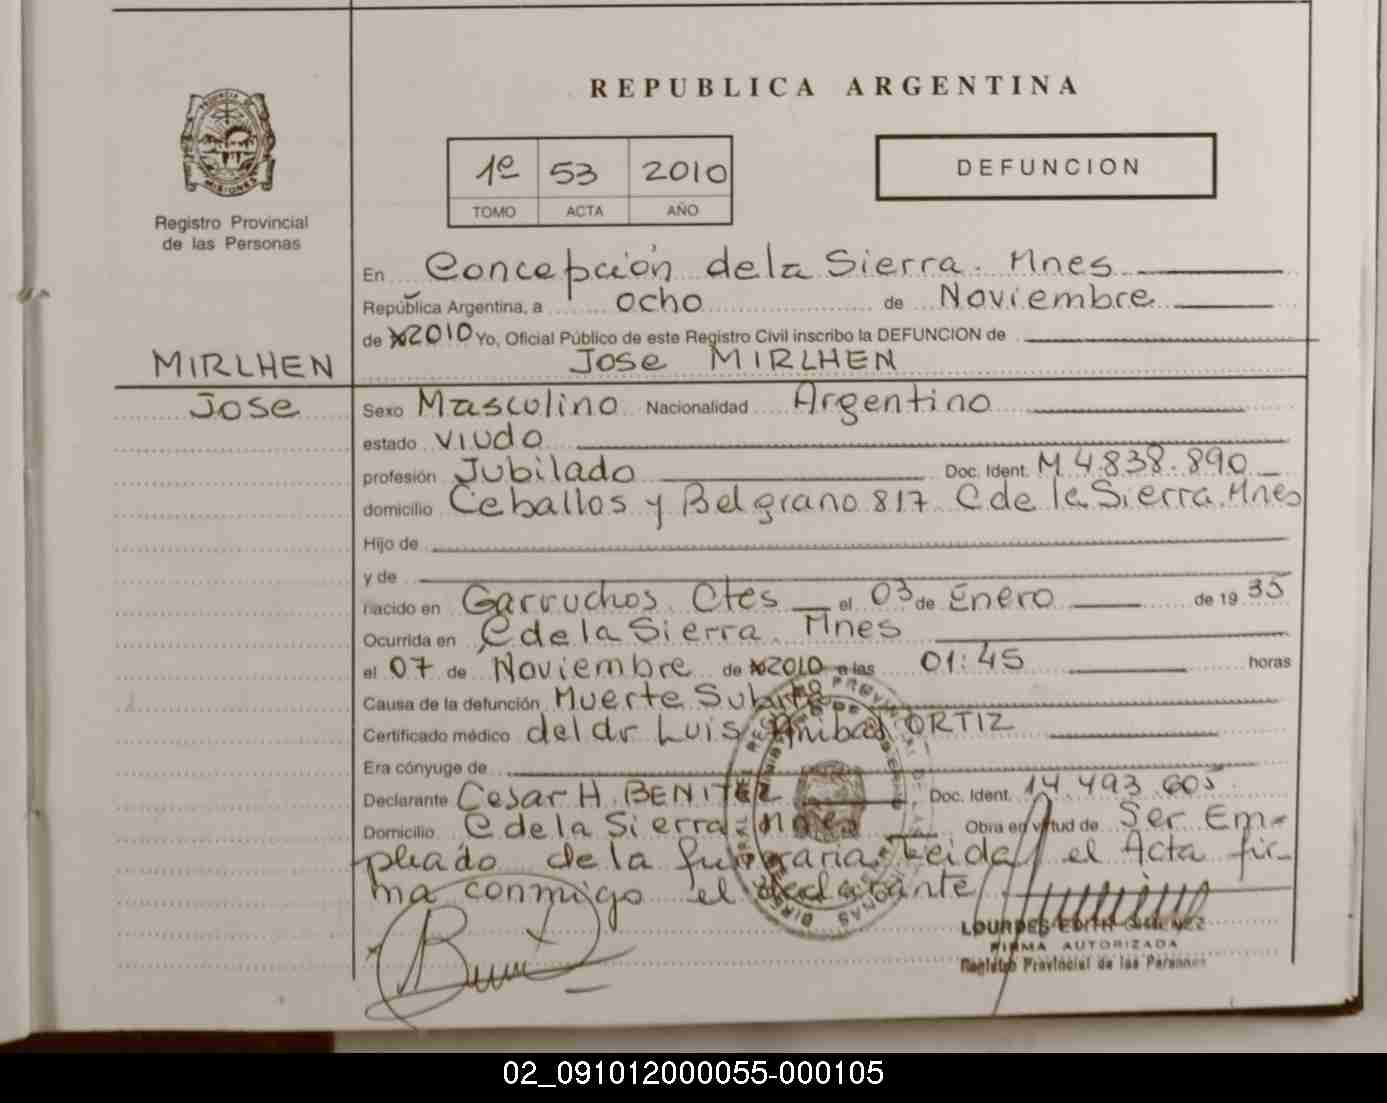 REPUBLICA ARGENTINA
PROVINCIA DE
MISIONES
Registro Provincial
de las Personas
1º 53 2010
TOMO ACTA AÑO
DEFUNCION
En Concepción dela Sierra. Mnes
República Argentina, a ocho de Noviembre
de 2010 Yo, Oficial Público de este Registro Civil inscribo la DEFUNCION de
Jose MIRLHEN
MIRLHEN
Jose
Sexo Masculino Nacionalidad Argentino
estado viudo
profesión Jubilado Doc. Ident. M 4.838.890
domicilio Ceballos y Belgrano 817 C de la Sierra. Mnes
Hijo de
y de
nacido en Garruchos Ctes el 03 de Enero de 19 35
Ocurrida en C de la Sierra. Mnes
el 07 de Noviembre de 2010 a las 01:45 horas
Causa de la defunción Muerte Subita
Certificado médico del dr Luis Anibal ORTIZ
Era cónyuge de
Declarante Cesar H. BENITEZ Doc. Ident. 14.493.605
Domicilio C de la Sierra Mnes Obra en virtud de Ser Em-
pleado de la funeraria. Leida el Acta fir-
ma conmigo el declarante
LOURDES EDITH GIMENEZ
FIRMA AUTORIZADA
Registro Provincial de las Personas
02_091012000055-000105